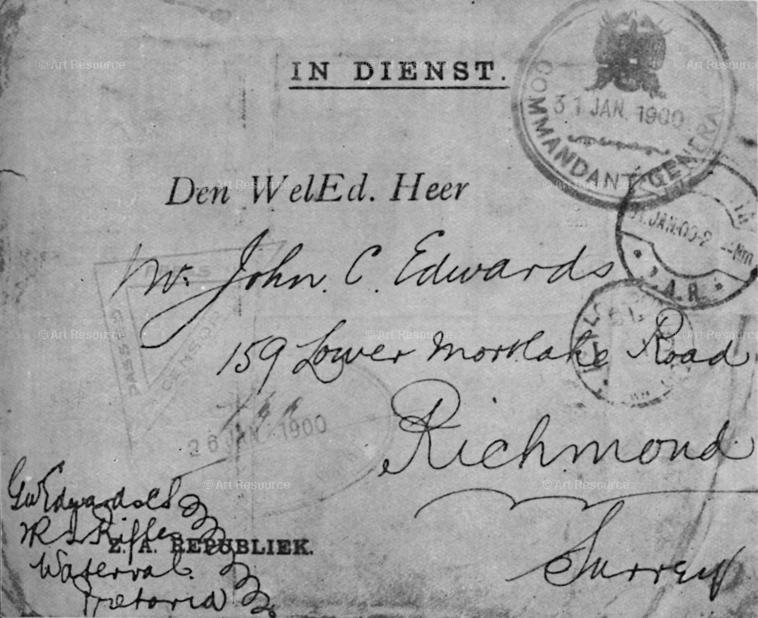 IN DIENST.
COMMANDANT GENERAAL
31 JAN. 1900
Den WelEd. Heer
31.JAN.00
Z.A.R.
Mr. John. C. Edwards
PRESS
CENSOR
PASSED
159 Lower Mortlake Road
26 JAN. 1900
Richmond
Surrey
Z. A. REPUBLIEK.
Waterval.
Pretoria
© Art Resource
© Art Resource
© Art Resource
© Art Resource
© Art Resource
© Art Resource
© Art Resource
© Art Resource
© Art Resource
© Art Resource
© Art Resource